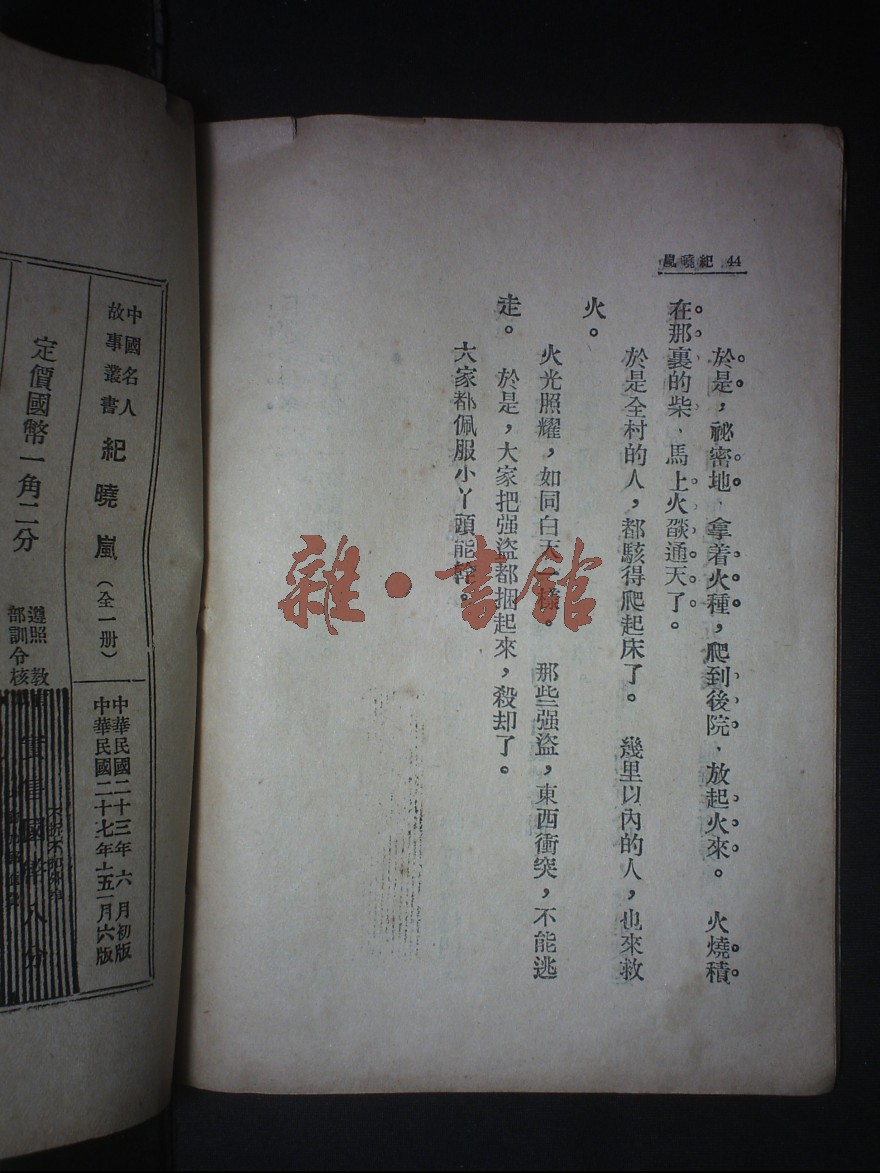 嵐曉紀 44
於是，祕密地，拿着火種，爬到後院，放起火來。火燒積
在那裏的柴，馬上火燄通天了。
於是全村的人，都駭得爬起床了。幾里以內的人，也來救
火。
火光照耀，如同白天一樣。那些强盜，東西衝突，不能逃
走。於是，大家把强盜都捆起來，殺却了。
大家都佩服小丫頭能幹。
雜·書館
中國名人
故事叢書
紀曉嵐（全一册）
中華民國二十三年六月初版
中華民國二十七年十五一月六版
定價國幣一角二分
遵照教
部訓令核
實售國幣八分